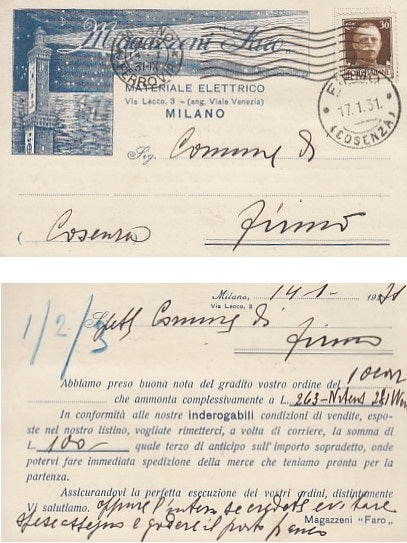 Magazzeni Faro
MATERIALE ELETTRICO
Via Lecco, 3 - (ang. Viale Venezia)
MILANO
30
FERROVIA
17.1.31.
(COSENZA)
Sig. Comune di
Firmo
( Cosenza
Milano, 14 1 - 1931
Via Lecco, 3
1/2/3
Spett Comune di
Firmo
Abbiamo preso buona nota del gradito vostro ordine del 10 corr
che ammonta complessivamente a L. 263 -
In conformità alle nostre inderogabili condizioni di vendite, espo-
ste nel nostro listino, vogliate rimetterci, a volta di corriere, la somma di
L. 100 - quale terzo di anticipo sull'importo sopradetto, onde
potervi fare immediata spedizione della merce che teniamo pronta per la
partenza.
Assicurandovi la perfetta esecuzione dei vostri ordini, distintamente
Vi salutiamo. oppure l'intero se credete evitare
spese assegno e godere il porto franco
Magazzeni "Faro"